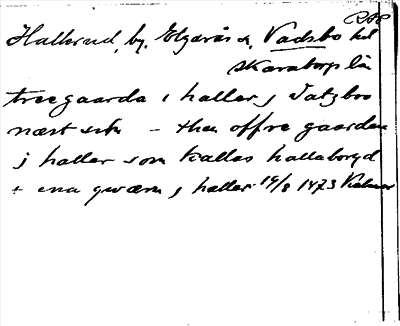 RAP
Hallerud, by, Elgarås s, Vadsbo hd
Skaraborgs län
tree gaarda i haller j Vatzboo
næst sik – then offre gaarden
j haller som kallas hallaboryd
+ ena qwærn j haller 14/8 1473 Kalmar